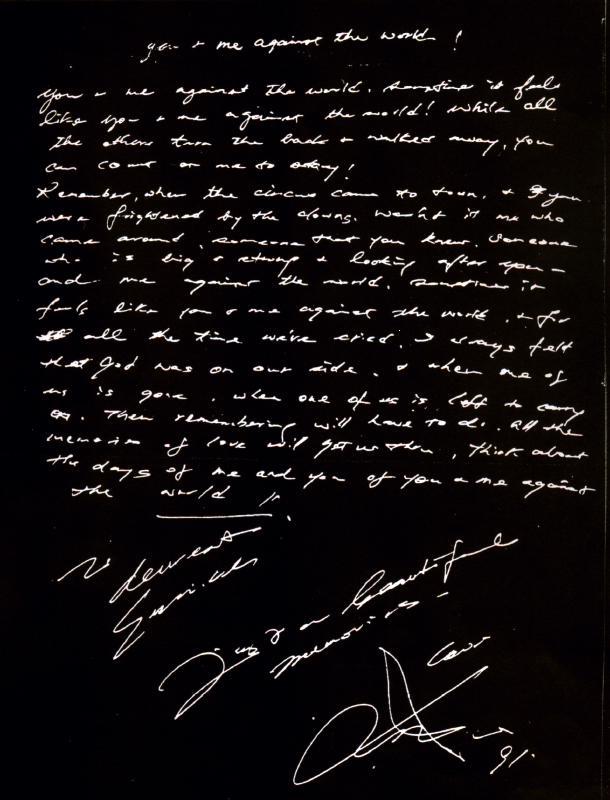 you & me against the world !
you & me against the world. Sometime it feels
like you & me against the world! While all
the others turn the back & walked away, you
can count on me to stay!
Remember, when the circus came to town, & you
were frightened by the clowns. Wasn't it me who
came around, someone that you knew. Someone
who is big & strong & looking after you -
and me against the world. Sometime it
feels like you & me against the world, & for
all the time we've cried, I always felt
that God was on our side. & when one of
us is gone, when one of us is left to carry
on. Then remembering will have to do. All the
memories of love will get us thru, think about
the days of me and you of you & me against
the world !!
To
Just a beautiful
memories -
Love
91.